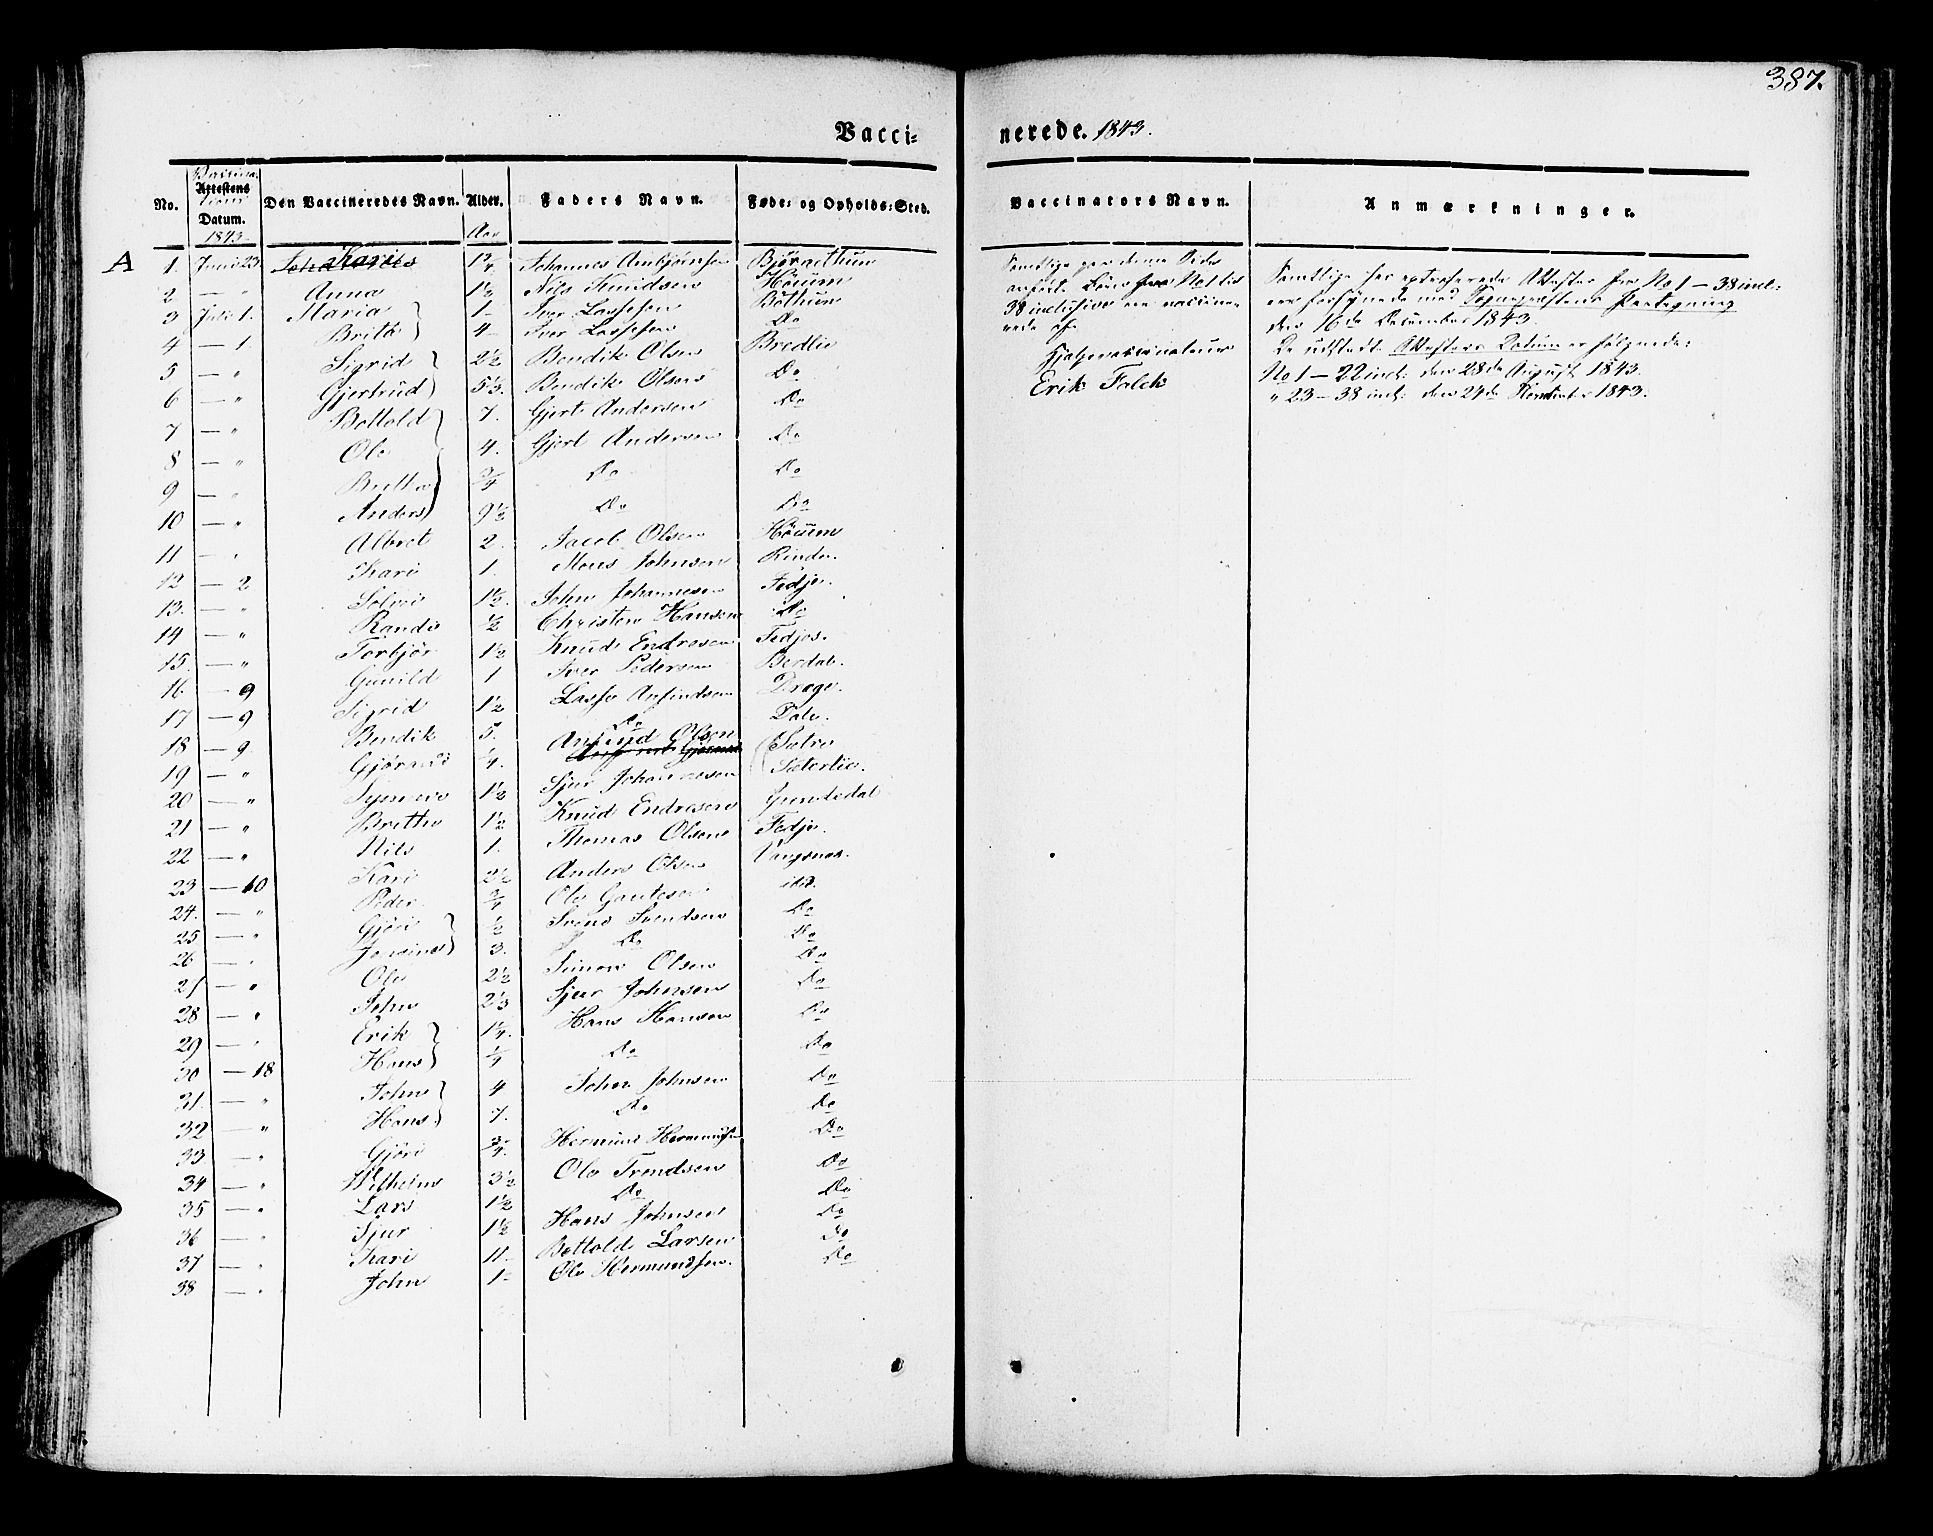 387.
Vacci- nerede. 1843.
No. | Vaccina- Attestens tions Datum. 1843 | Den Vaccineredes Navn. | Alder. Aar | Faders Navn. | Føde- og Opholds-Sted. | Vaccinators Navn. | Anmærkninger.
A
1. Juni 23. Kari 1¼ Johannes Arnbjørnsen Bjøraethun
2 — " Anna 1½ Nils Knudsen Höuem
3 Juli 1. Maria 1 Iver Lassesen Bøthun
4 — 1. Britte 4 Iver Lassesen Do
5 — " Sigrid 2½ Bendik Olsen Bredlie
6 — " Gjertrud 5⅓. Bendik Olsen Do
7 — " Bottold 7. Gjert Andersen Do
8 — " Ole 4. Gjert Andersen Do
9 — " Brittha ¾ Do Do
10 — " Anders 9½ Do Do
11 — " Albret 2. Jacob Olsen Höuem
12 — 2 Kari 1. Mons Johnsen Rinde.
13. — " Solvei 1½. John Johannesen Fedje.
14 — " Randi ½ Christen Hansen Do
15. — " Torbjør 1½ Knud Endresen Fedjos.
16. — 9 Gunild 1 Iver Pedersen Berdal.
17 — 9 Sigrid 1½ Lasse Anfindsen Drage.
18 — 9. Bendik 5. Do Dale.
19 — " Gjørand ¼. Anfind Olsen Sætre Sæterlie.
20 — " Synneve 1½ Sjur Johannesen Grindedal
21 — " Britthe 1½ Knud Endresen Fedje.
22 — " Nils 1. Thomas Olsen Vangsnæs.
23 — 10 Kari 2½ Anders Olsen id.
24. — " Peder ¾ Ole Gautesen Do
25 — " Gjöri ½ Svend Svendsen Do
26 — " 3. Do Do
27 — " Ole 2½ Simon Olsen Do
28 — " John 2⅓ Sjur Johnsen Do
29 — " Erik 1¼. Hans Hansen Do
30 — 18 Hans ¼ Do Do
31. — " John 4 John Johnsen Do
32 — " Hans 7. Do Do
33 — " Gjöri ¾. Hermund Hermunsen Do
34 — " Wilhelm 3½ Ole Trondsen Do
35 — " Lars 1½ Do Do
36 — " Sjur 1½ Hans Johnsen Do
37 — " Kari 11 Bottold Larsen Do
38 — " John 1 Ole Hermundsen. Do
Samtlige paa denne Side
anførte Børn fra No 1 til
38 inclusive ere vaccine-
rede af
Hjælpevaccinateur
Erik Falck
Samtlige her extraherede Attester fra No 1 — 38 incl:
ere forsynede med Sognepræstens Paategning
den 16de December 1843.
De udstedte Attesters Datum er følgende:
No 1 — 22 incl: den 28de August 1843.
" 23 — 38 incl: den 24de November 1843.